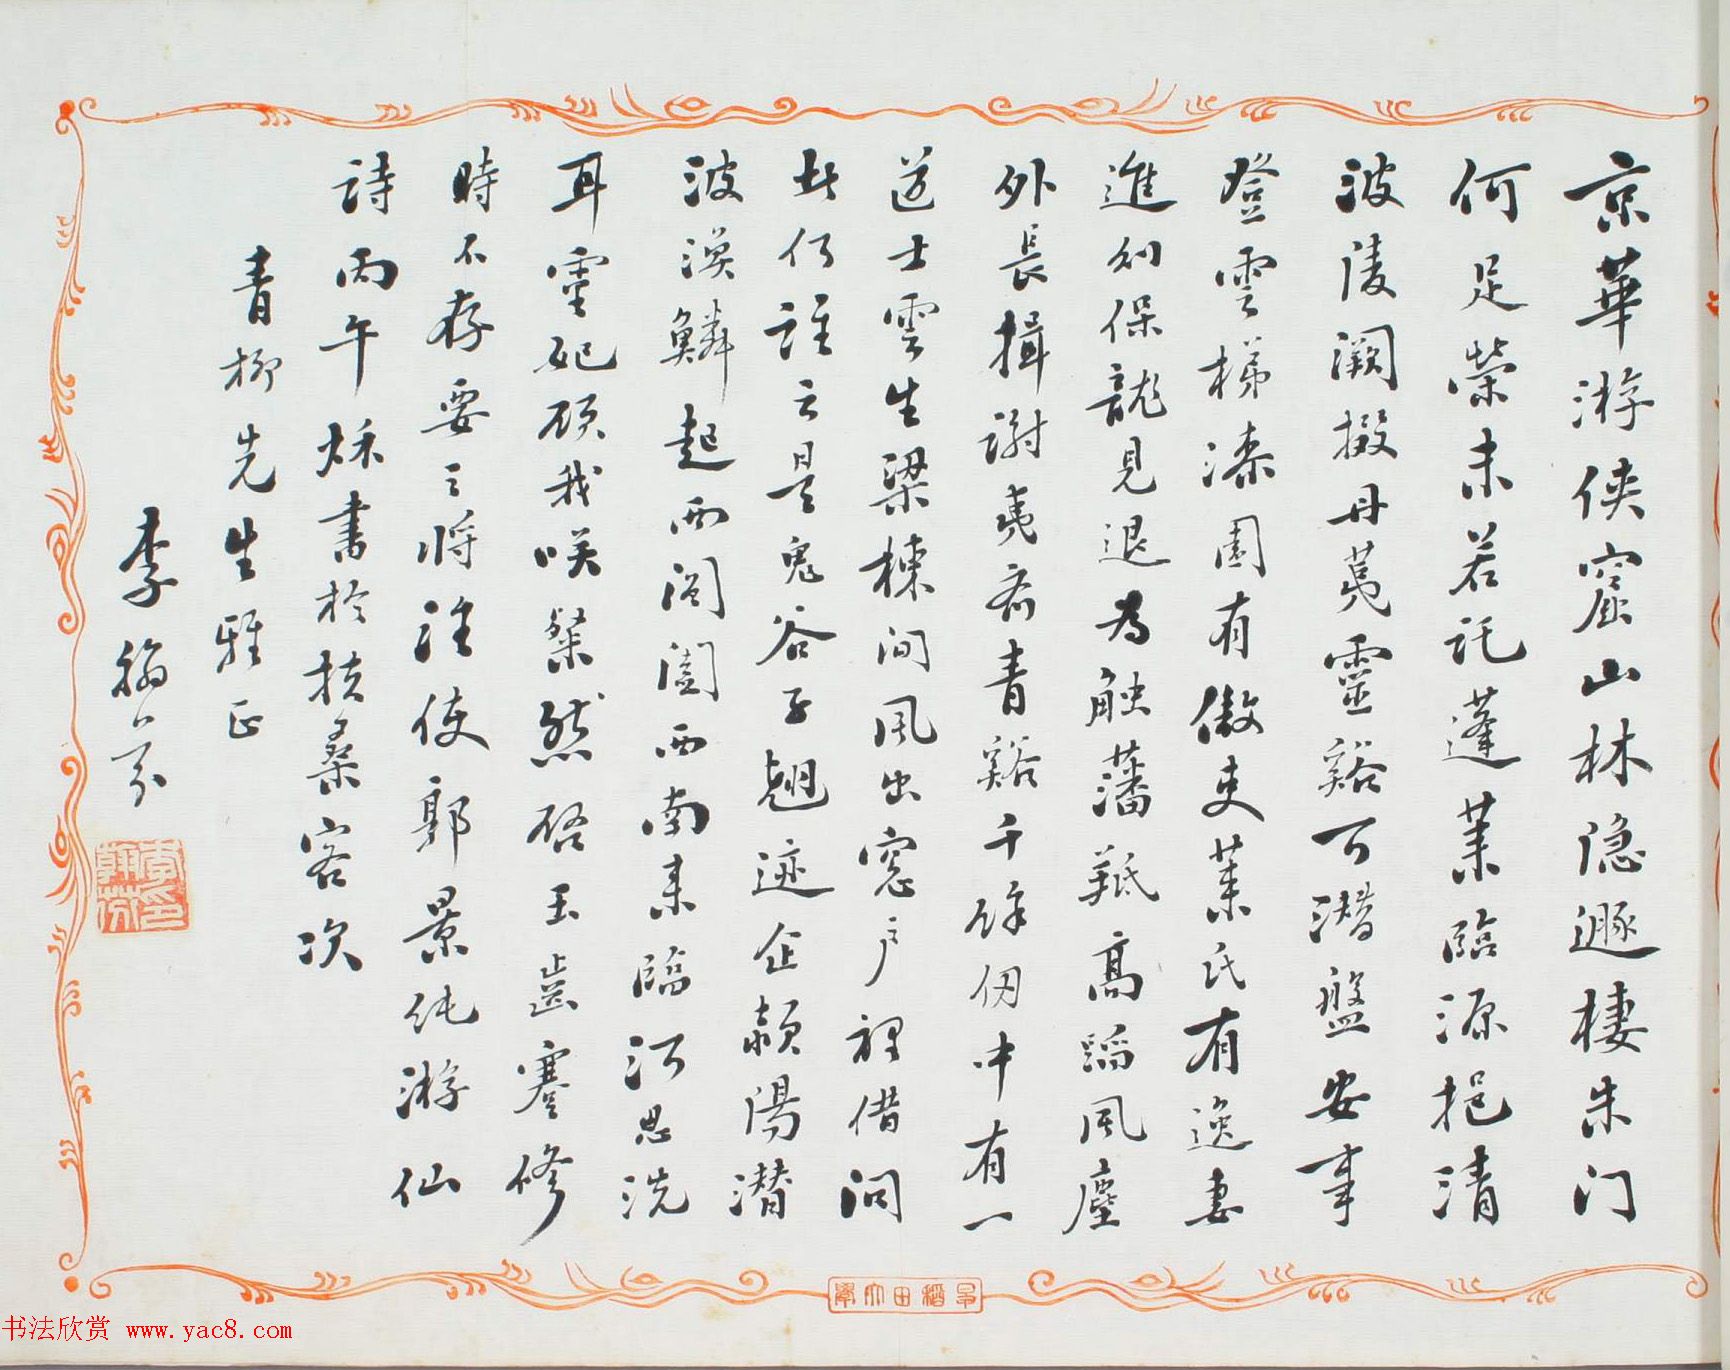 京華游侠窟山林隐遯棲朱门
何足荣未若託蓬莱臨源挹清
波陵阙掇丹荑靈谿可潜盤安事
登雲梯漆園有傲吏莱氏有逸妻
進则保龍見退為触藩羝高蹈風塵
外長揖謝夷齐青谿千馀仞中有一
道士雲生梁棟间風出窓户裡借问
此何誰云是鬼谷子翘迹企颍陽潜
波渙鱗起西阊闔西南来臨河思洗
耳靈妃顾我咲粲然啓玉齒蹇修
時不存要之将誰使郭景纯游仙
詩丙午秌書於扶桑客次
青柳先生雅正
李翰芬
李翰芬印
早稻田大學
书法欣赏 www.yac8.com